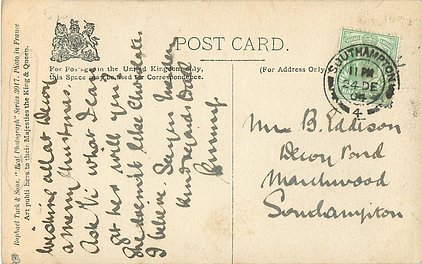 POST CARD.
For Postage in the United Kingdom only,
this Space may be used for Correspondence
(For Address Only)
Raphael Tuck & Sons, "Real Photograph" Series 2017. Photo in France
Art publishers to their Majesties the King & Queen.
wishing all at Decoy
a merry Christmas.
Ask Vi what I can
get her will you
she doesn't like Chocolate
I believe.
Kind regards
SOUTHAMPTON
11 PM
DE
4
B. Eddison
Decoy Pond
Marchwood
Southampton